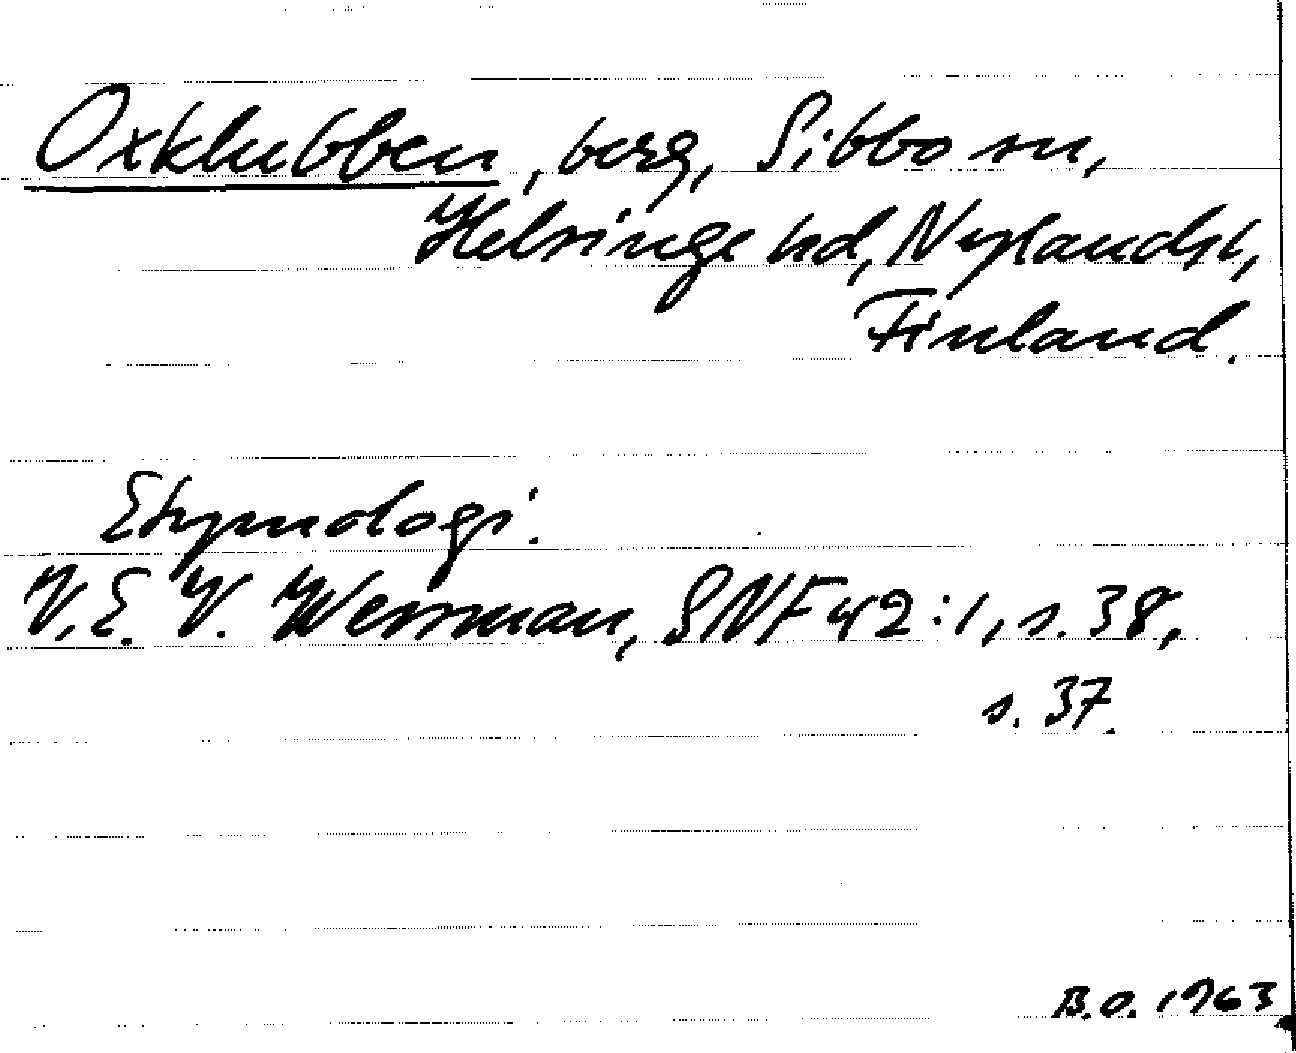 Oxklubben, berg, Sibbo sn,
Helsinge hd, Nylands l,
Finland.
Etymologi.
V. E. V. Wessman, SNF 42:1, s. 38,
s. 37.
B.O. 1963